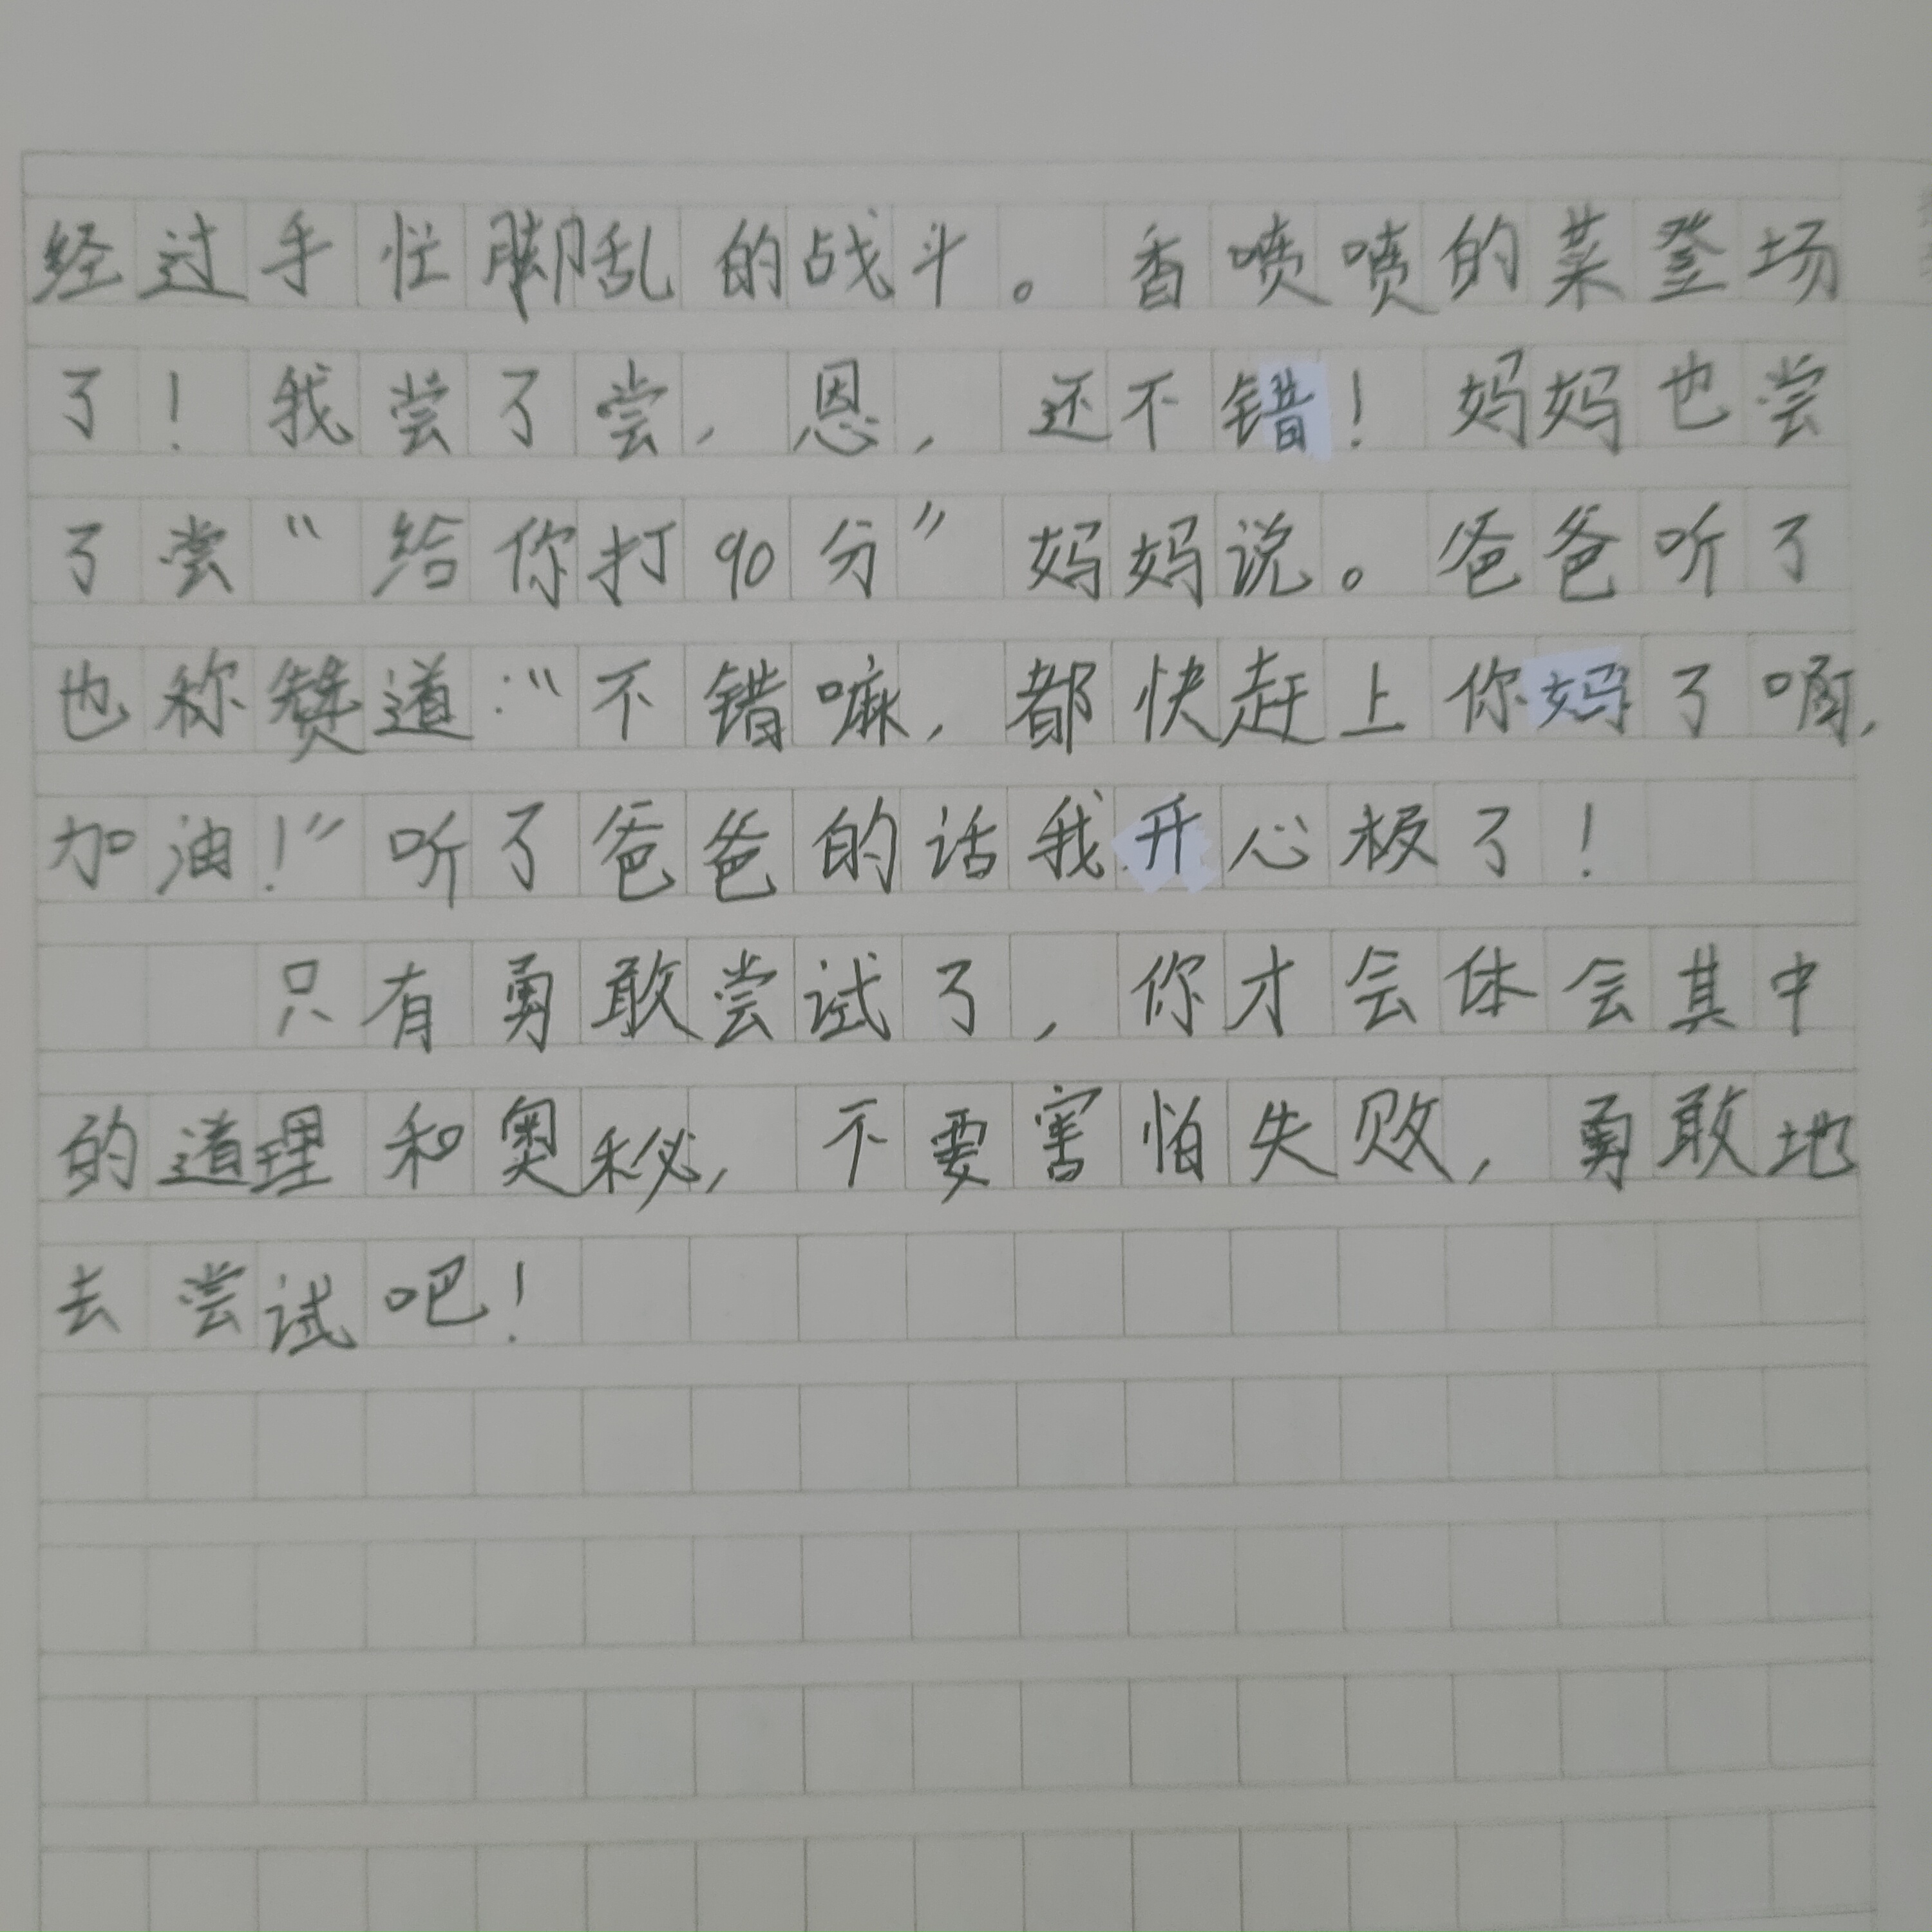 经过手忙脚乱的战斗。香喷喷的菜登场
了！我尝了尝，恩，还不错！妈妈也尝
了尝“给你打90分”妈妈说。爸爸听了
也称赞道：“不错嘛，都快赶上你妈了啊，
加油！”听了爸爸的话我开心极了！
只有勇敢尝试了，你才会体会其中
的道理和奥秘，不要害怕失败，勇敢地
去尝试吧！